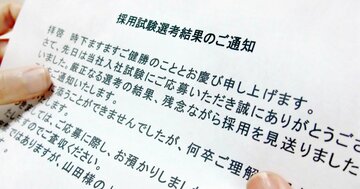 採用試験選考結果のご通知
拝啓 時下ますますご健勝のこととお慶び申し上げます。
さて、先日は当社入社試験にご応募いただき誠にありがとうござ
いました。厳正なる選考の結果、残念ながら採用を見送りました
ことをご通知いたします。
添うことができませんでしたが、何卒ご理解
しては、ご応募に際し、お預かりしました
のでご査収ください。
ではありますが、山田様の